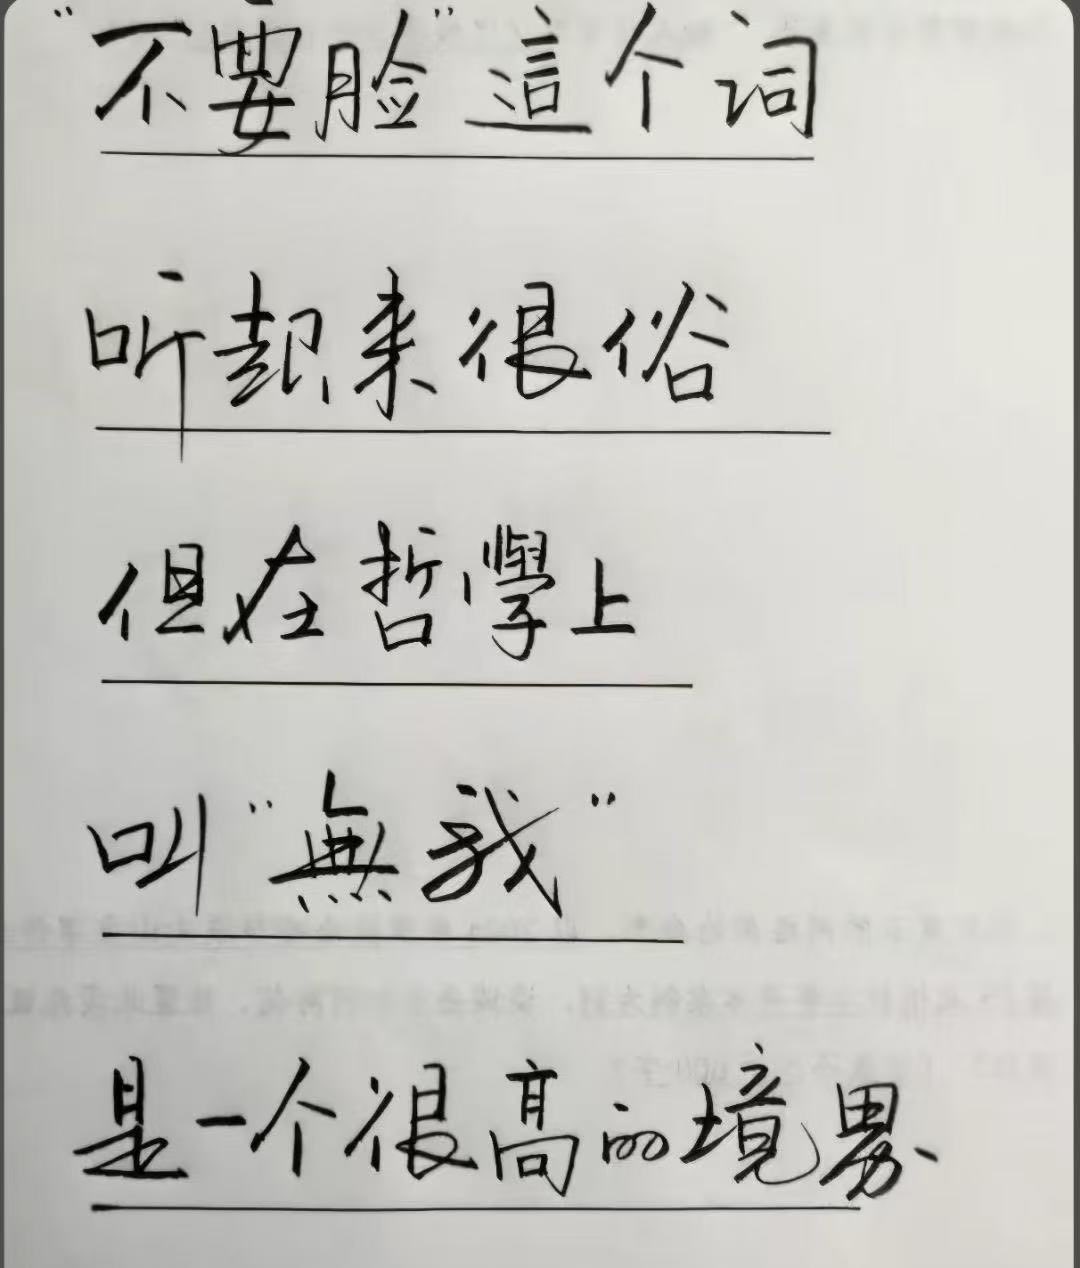 "不要脸"這个词
听起来很俗
但在哲學上
叫"無我"
是一个很高的境界、